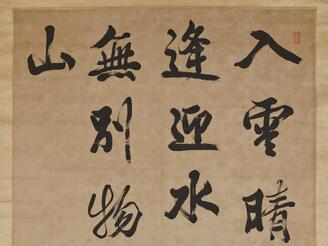 入雲晴
逢迎水
無別物
山